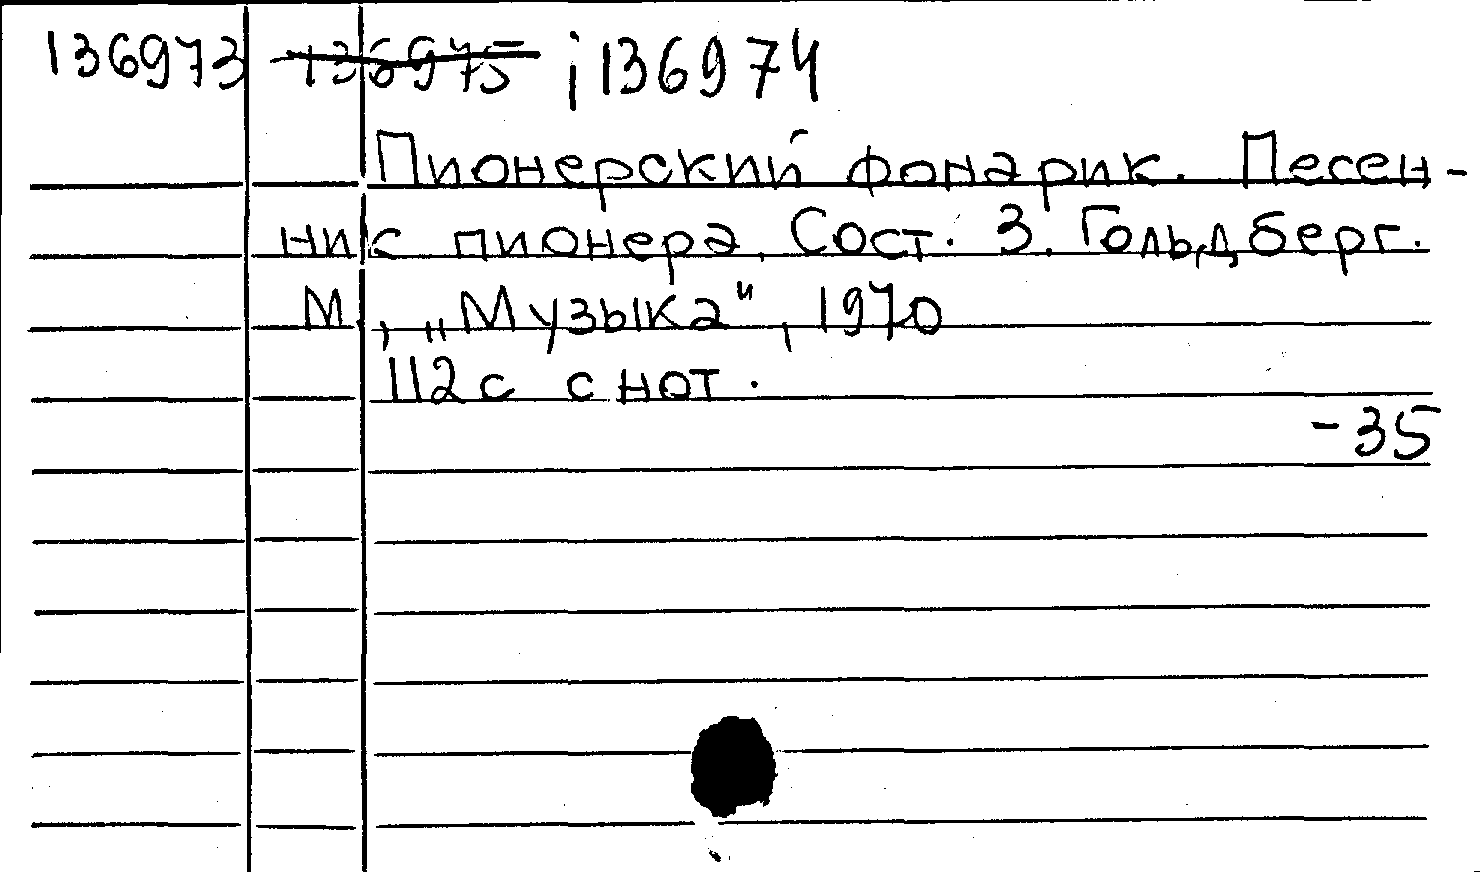 136973 136975 ; 136974
Пионерский фонарик. Песен-
ник пионера. Сост. З. Гольдберг.
М., „Музыка", 1970
112 с с нот.
-35